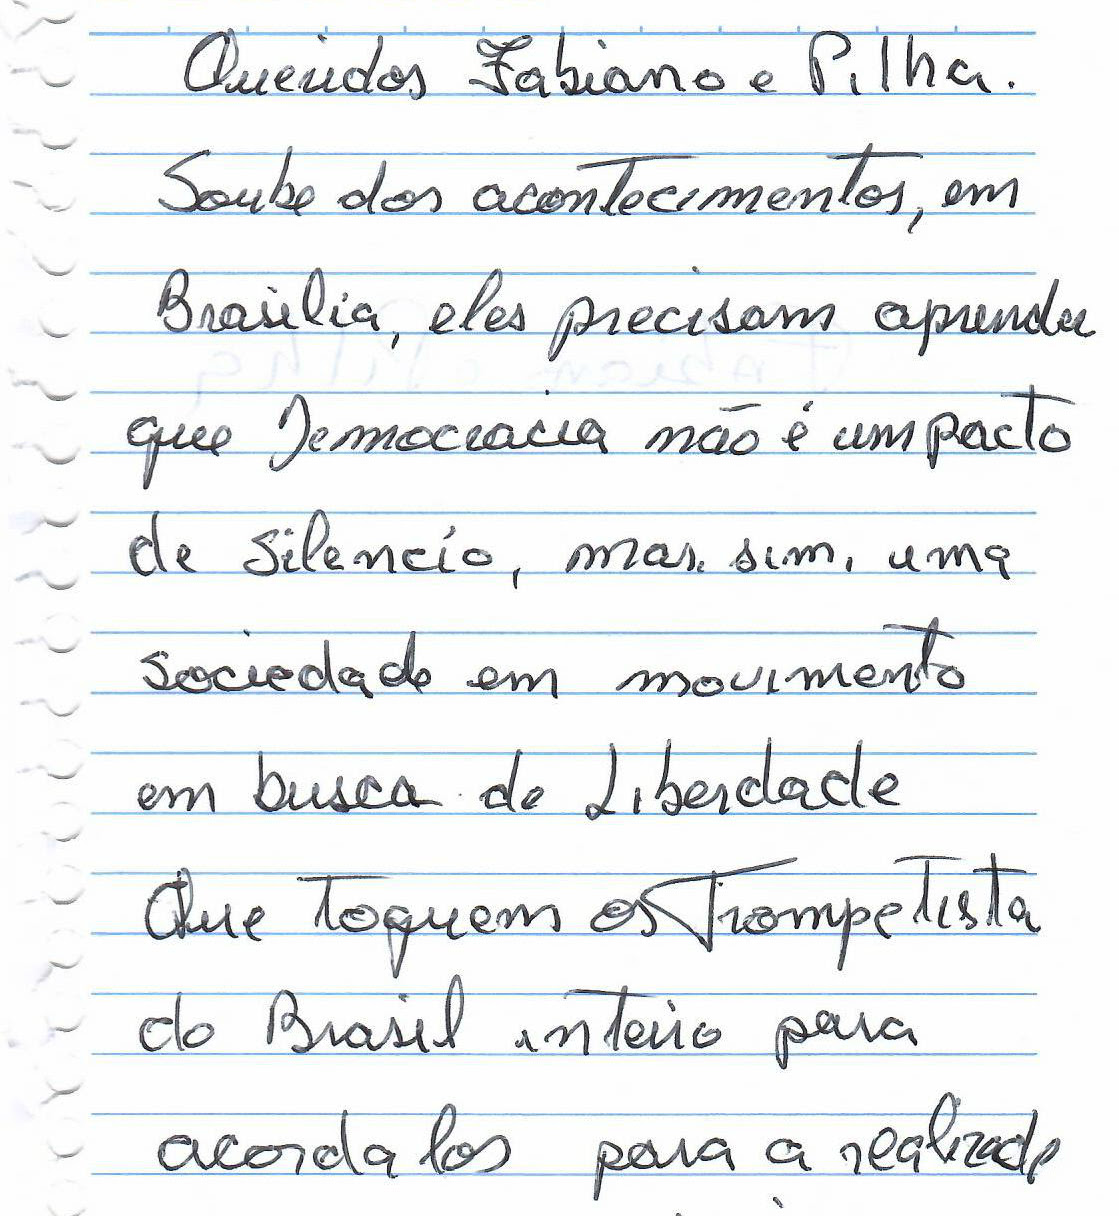 Queridos Fabiano e Pilha.
Soube dos acontecimentos, em
Brasilia, eles precisam aprender
que Democracia não é um pacto
de silencio, mas, sim, uma
sociedade em movimento
em busca de Liberdade
Que toquem os Trompetista
do Brasil inteiro para
acorda los para a realizade